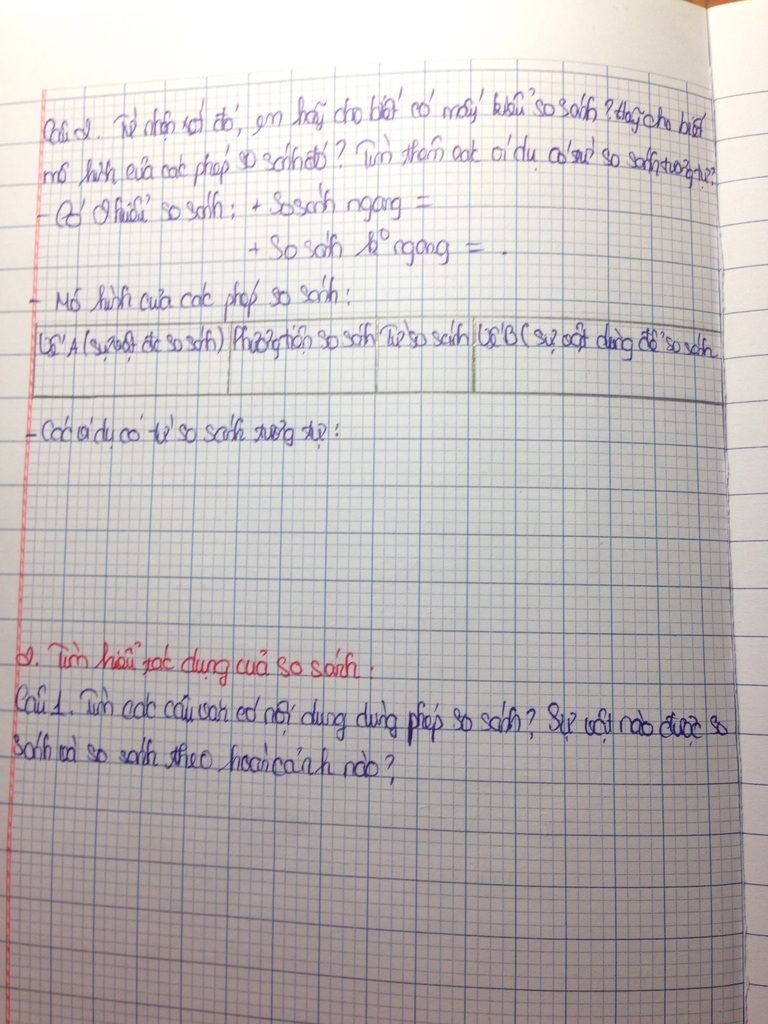 Câu 2. Từ nhận xét đó, em hãy cho biết có mấy kiểu so sánh? Hãy cho biết
mô hình của các phép so sánh đó? Tìm thêm các ví dụ có từ so sánh tương tự?
- Có 2 kiểu so sánh: + So sánh ngang =
+ So sánh k° ngang = .
- Mô hình của các phép so sánh:
Vế A (sự vật đc so sánh) Phương tiện so sánh Từ so sánh Vế B (sự vật dùng để so sánh
- Các ví dụ có từ so sánh tương tự:
2. Tìm hiểu tác dụng của so sánh:
Câu 1. Tìm các câu văn có nội dung dùng phép so sánh? Sự vật nào được so
sánh và so sánh theo hoàn cảnh nào?